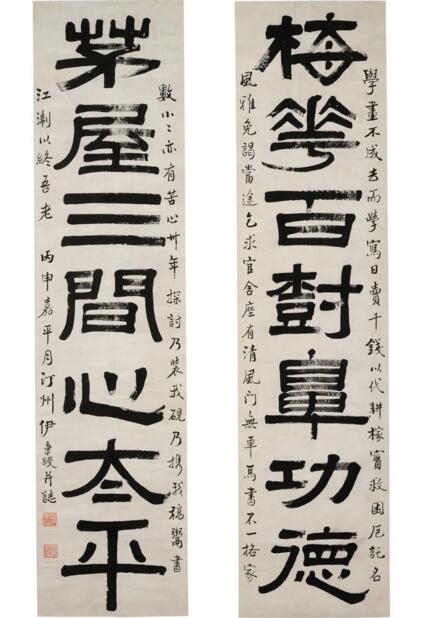 梅華百尌鼻功德
茅屋三間心太平
學畫不成去而學寫日賣千錢以代耕稼實救困厄託名
風雅免謁當途乞求官舍座有清風門無車馬書不一格家
數小〻亦有苦心卅年探討乃裝我硯乃攜我稿鬻書
江淛以終吾老 丙申嘉平月汀州伊秉綬并誌